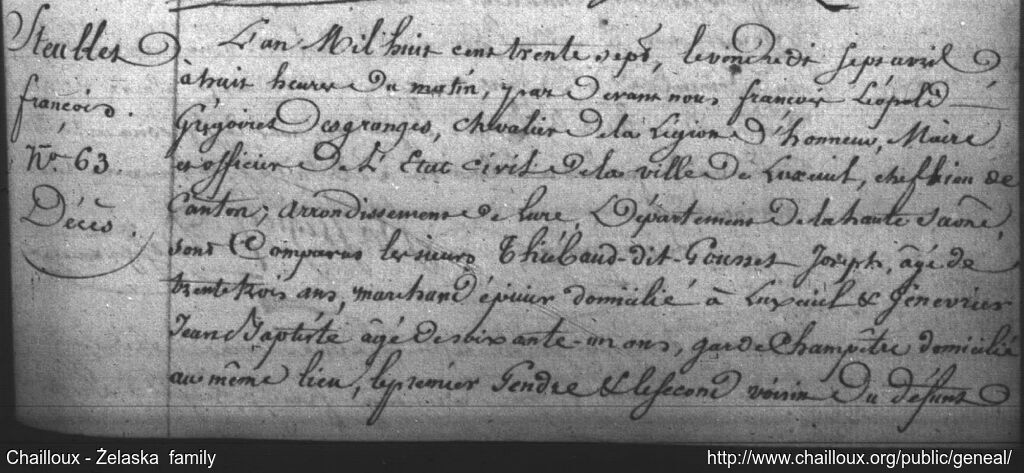 Steublet
françois.
N.o 63.
Décès.
L'an Mil huit cent trente sept, le vendredi sept avril
à huit heures du matin, par devant nous françois Léopold
Grégoire Desgranges, chevalier de la Légion d'honneur, Maire
et officier de L'Etat civil de la ville de Luxeuil, chef lieu de
Canton, arrondissement de lure, Département de la haute saône,
sont Comparus les sieurs Thiébaud-dit-Gousset Joseph, âgé de
trente trois ans, marchand épicier domicilié à Luxeuil & Génevrier
Jean Baptiste âgé de soixante-un ans, garde champêtre domicilié
au même lieu, le premier Gendre & le second voisin du défunt
Chailloux - Żelaska family
http://www.chailloux.org/public/geneal/